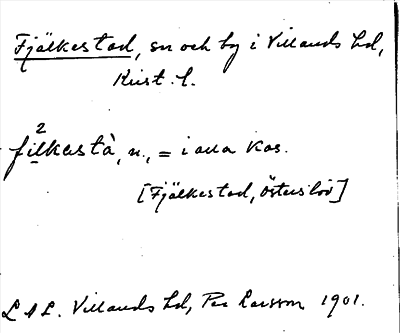 Fjälkestad, sn och by i Villands hd,
Krist. l.
2
filkastà, n., = i alla kas.
[Fjälkestad, Österslöv]
LAL. Villands hd, Per Larsson 1901.